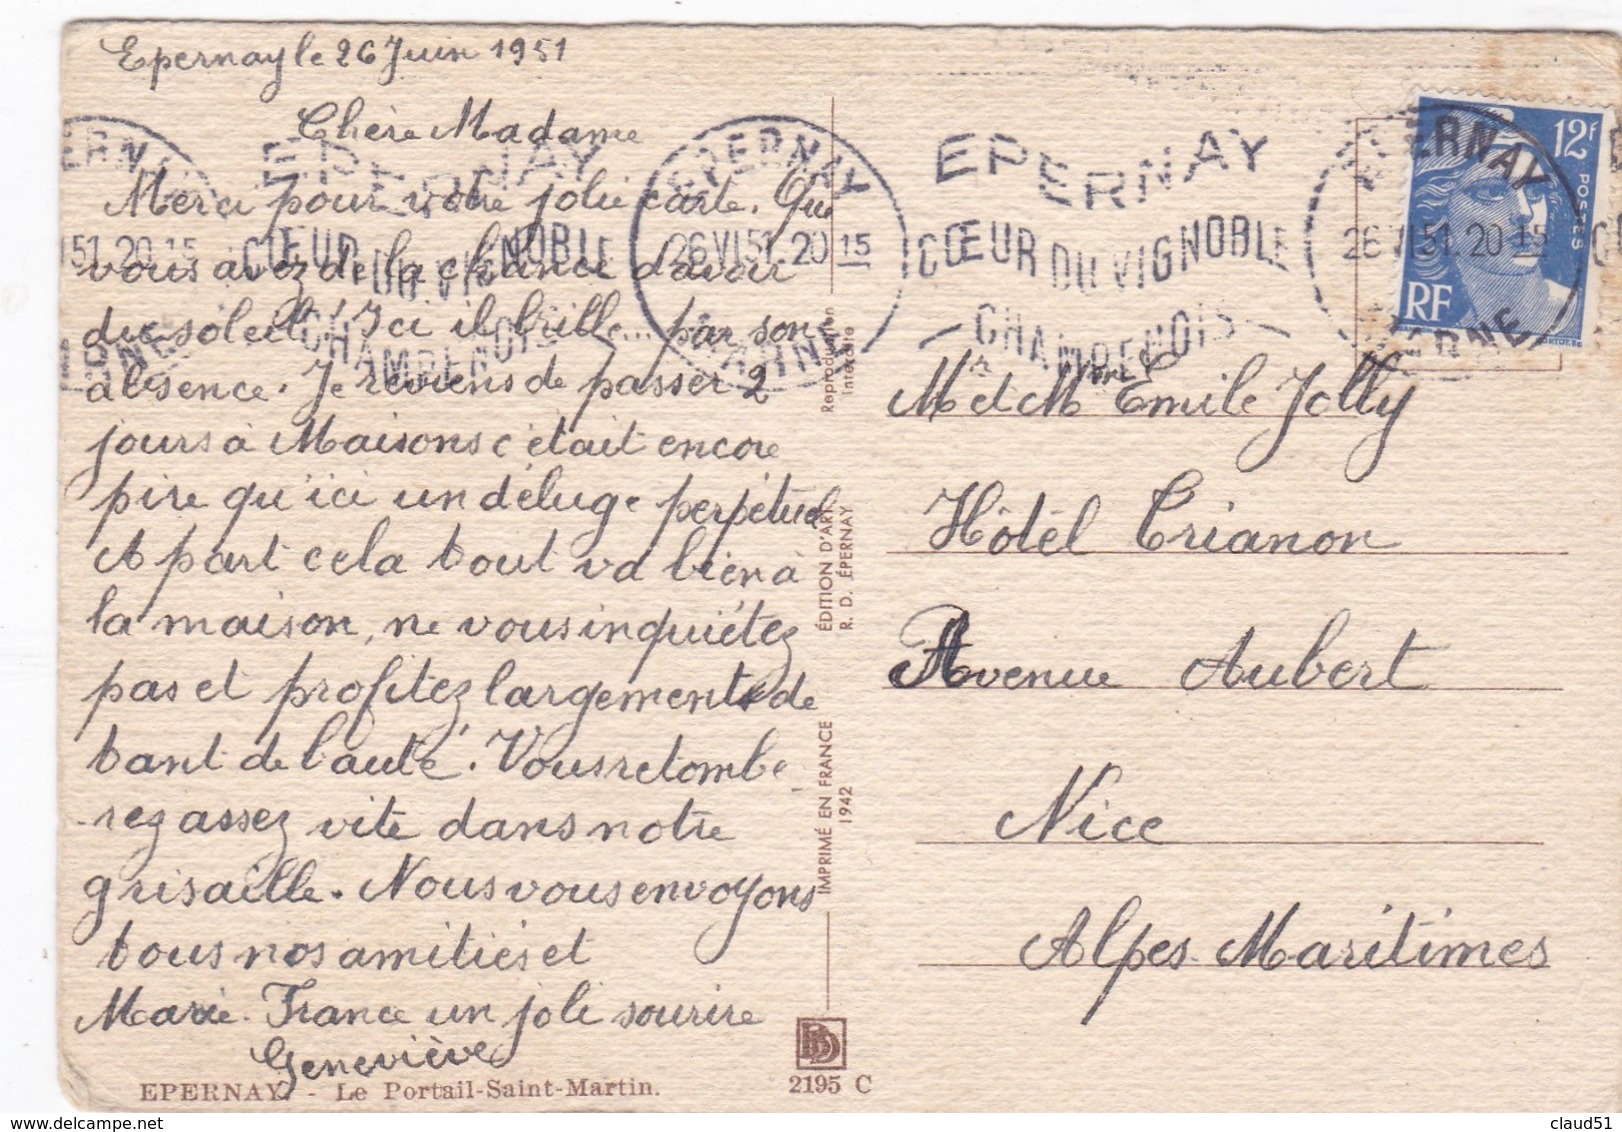 Epernay le 26 Juin 1951
Chère Madame
Merci pour votre jolie carte. Que
vous avez de la chance d'avoir
du soleil! Ici il brille... par son
absence. Je reviens de passer 2
jours à Maisons c'était encore
pire qu'ici un déluge perpétuel
A part cela tout va bien à
la maison, ne vous inquiétez
pas et profitez largement de
tant de bauté. Vous retombe
rez assez vite dans notre
grisaille. Nous vous envoyons
tous nos amitiés et
Marie-France un joli sourire
Geneviève
EPERNAY. - Le Portail-Saint-Martin.
EPERNAY
CŒUR DU VIGNOBLE
CHAMPENOIS
EPERNAY
26 VI 51. 20 15
MARNE
EPERNAY
CŒUR DU VIGNOBLE
- CHAMPENOIS -
EPERNAY
26 VI 51. 20 15
MARNE
12f
POSTES
RF
Reproduction
interdite
ÉDITION D'ART
R. D. ÉPERNAY
IMPRIMÉ EN FRANCE
1942
2195 C
Mr et Mme Emile Jolly
Hôtel Trianon
Avenue Aubert
Nice
Alpes-Maritimes
claud51